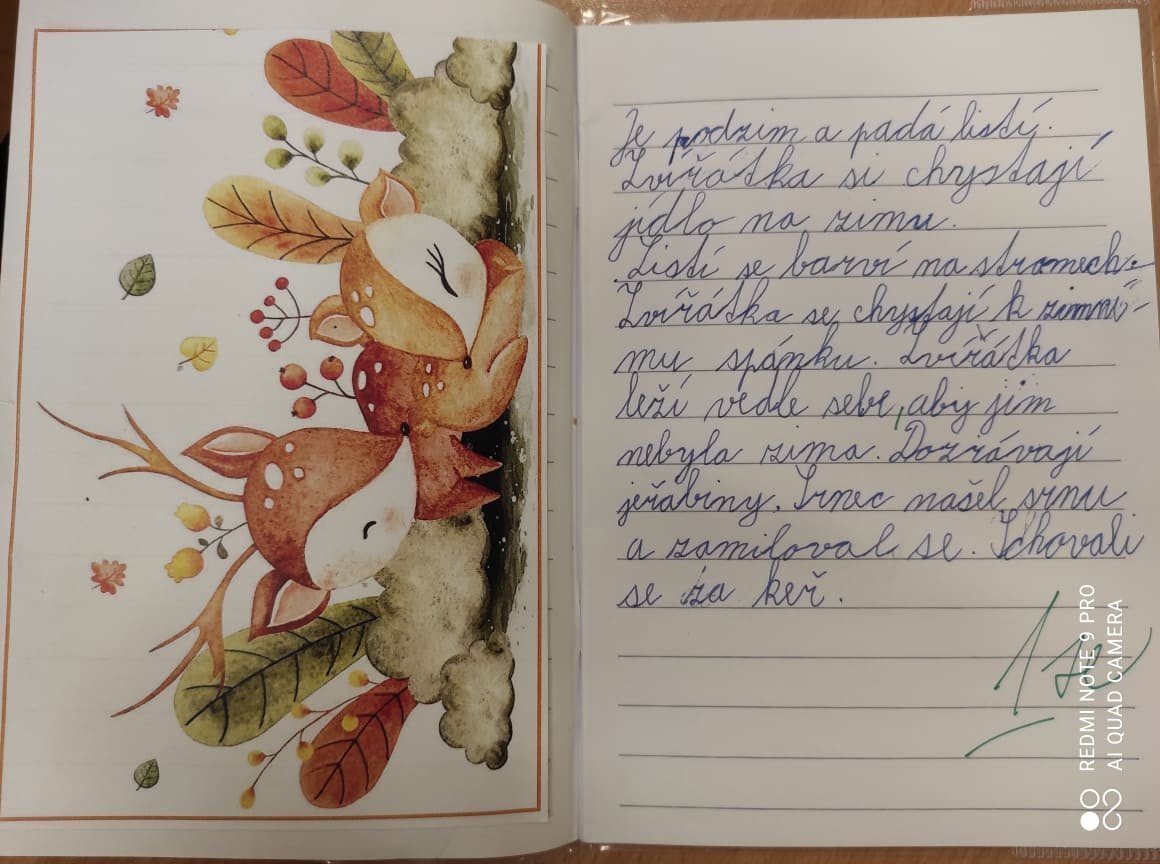 Je podzim a padá listí.
Zvířátka si chystají
jídlo na zimu.
Listí se barví na stromech.
Zvířátka se chystají k zimní-
mu spánku. Zvířátka
leží vedle sebe, aby jim
nebyla zima. Dozrávají
jeřabiny. Srnec našel srnu
a zamiloval se. Schovali
se za keř.
1
REDMI NOTE 9 PRO
AI QUAD CAMERA